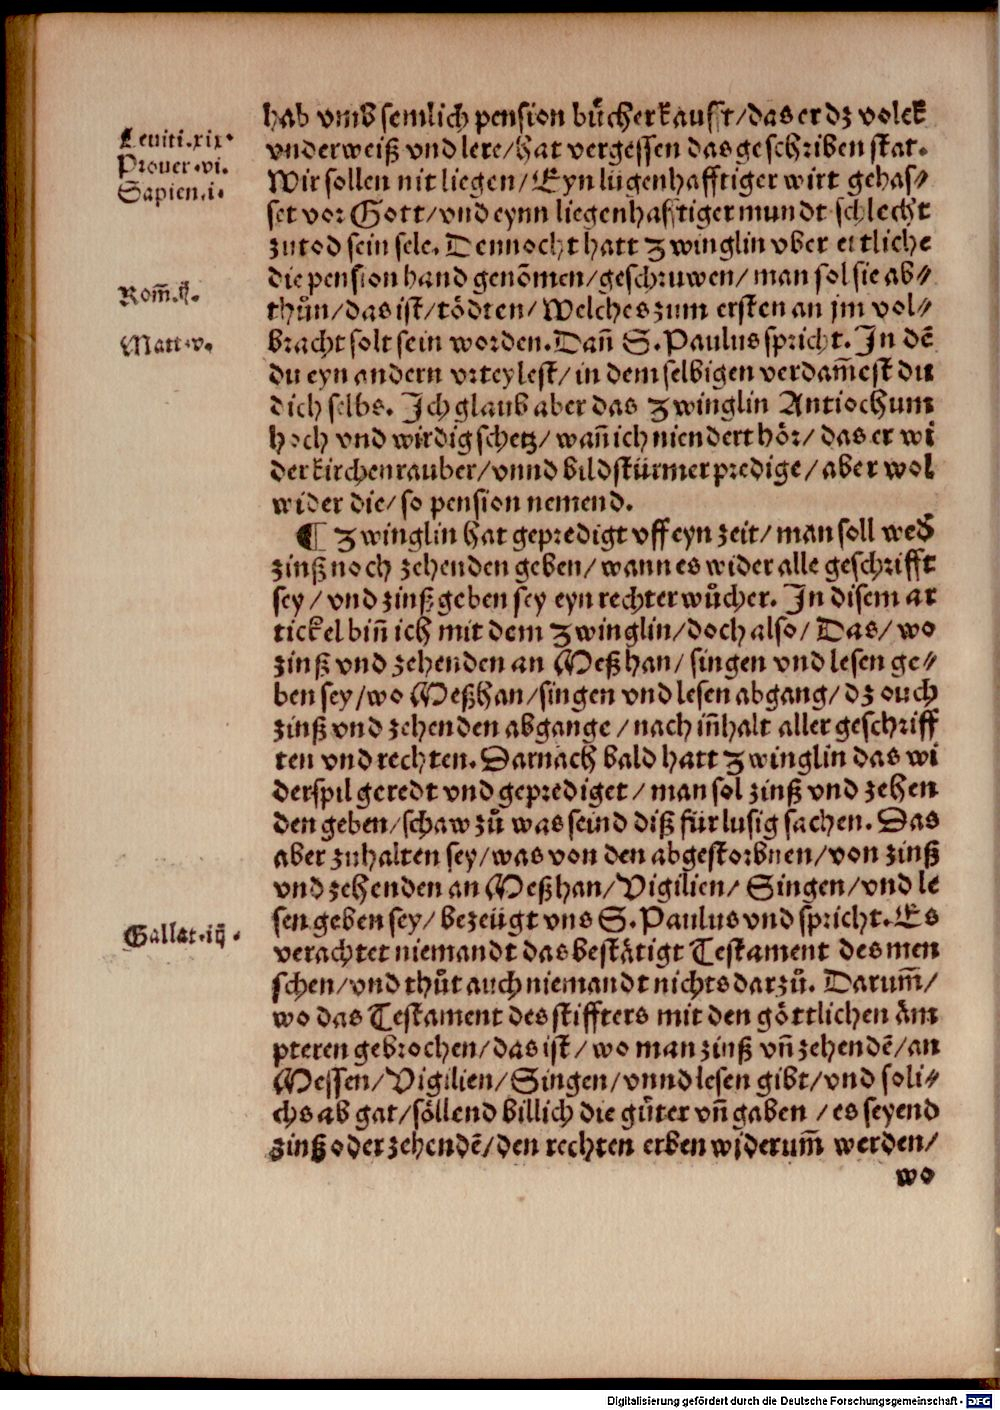 hab vmb semlich pension bücher kaufft/ das er dz volck
Leuiti.xix.
vnderweiß vnd lere/ hat vergessen das geschriben stat.
Prouer.vi.
Wir sollen nit liegen/ Eyn lügenhafftiger wirt gehas⸗
Sapien.i.
set vor Gott/ vnd eynn liegenhafftiger mundt schlecht
zutod sein sele. Dennocht hatt Zwinglin vber etliche
die pension hand genõmen/ geschruwen/ man sol sie ab⸗
Rom̃.ij.
thůn/ das ist/ tödten/ Welches zum ersten an jm vol⸗
Matt.v.
bracht solt sein worden. Dañ S. Paulus spricht. In dẽ
du eyn andern vrteylest/ in dem selbigen verdam̃est du
dich selbs. Ich glaub aber das Zwinglin Antiochum
hoch vnd wirdig schetz/ wañ ich niendert hör/ das er wi
der kirchenrauber/ vnnd bildstürmer predige/ aber wol
wider die/ so pension nemend.
¶ Zwinglin hat gepredigt vff eyn zeit/ man soll wed͛
zinß noch zehenden geben/ wann es wider alle geschrifft
sey/ vnd zinß geben sey eyn rechter wůcher. In disem ar
tickel biñ ich mit dem Zwinglin/ doch also/ Das/ wo
zinß vnd zehenden an Meßhan/ singen vnd lesen ge⸗
ben sey/ wo Meßhan/ singen vnd lesen abgang/ dz ouch
zinß vnd zehenden abgange/ nach iñhalt aller geschriff
ten vnd rechten. Darnach bald hatt Zwinglin das wi
derspil geredt vnd geprediget/ man sol zinß vnd zehen
den geben/ schaw zů was seind diß für lusig sachen. Das
aber zuhalten sey/ was von den abgestorbnen/ von zinß
vnd zehenden an Meßhan/ Vigilien/ Singen/ vnd le
sen geben sey/ bezeügt vns S. Paulus vnd spricht. Es
Gallat.iij.
verachtet niemandt das bestätigt Testament des men
schen/ vnd thůt auch niemandt nichts darzů. Darum̃/
wo das Testament des stiffters mit den göttlichen äm
pteren gebrochen/ das ist/ wo man zinß vñ zehendẽ/ an
Messen/ Vigilien/ Singen/ vnnd lesen gibt/ vnd soli⸗
chs ab gat/ söllend billich die güter vñ gaben / es seyend
zinß oder zehendẽ/ den rechten erben widerum̃ werden/
wo
Digitalisierung gefördert durch die Deutsche Forschungsgemeinschaft - DFG